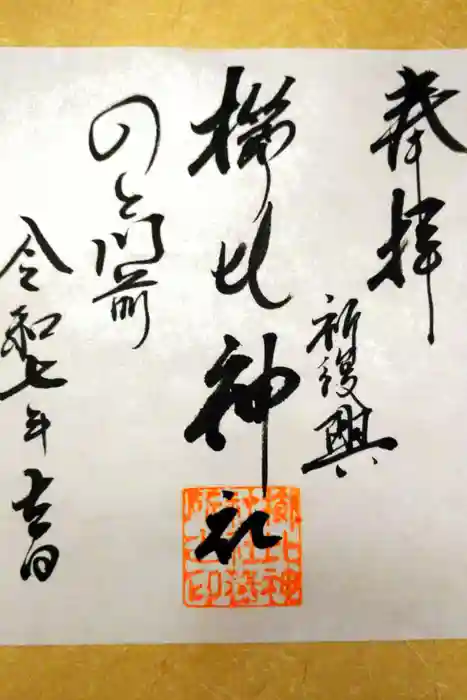 奉拝
祈復興
櫛比神社
のと門前
令和七年吉日
櫛比神
社社務
所之印